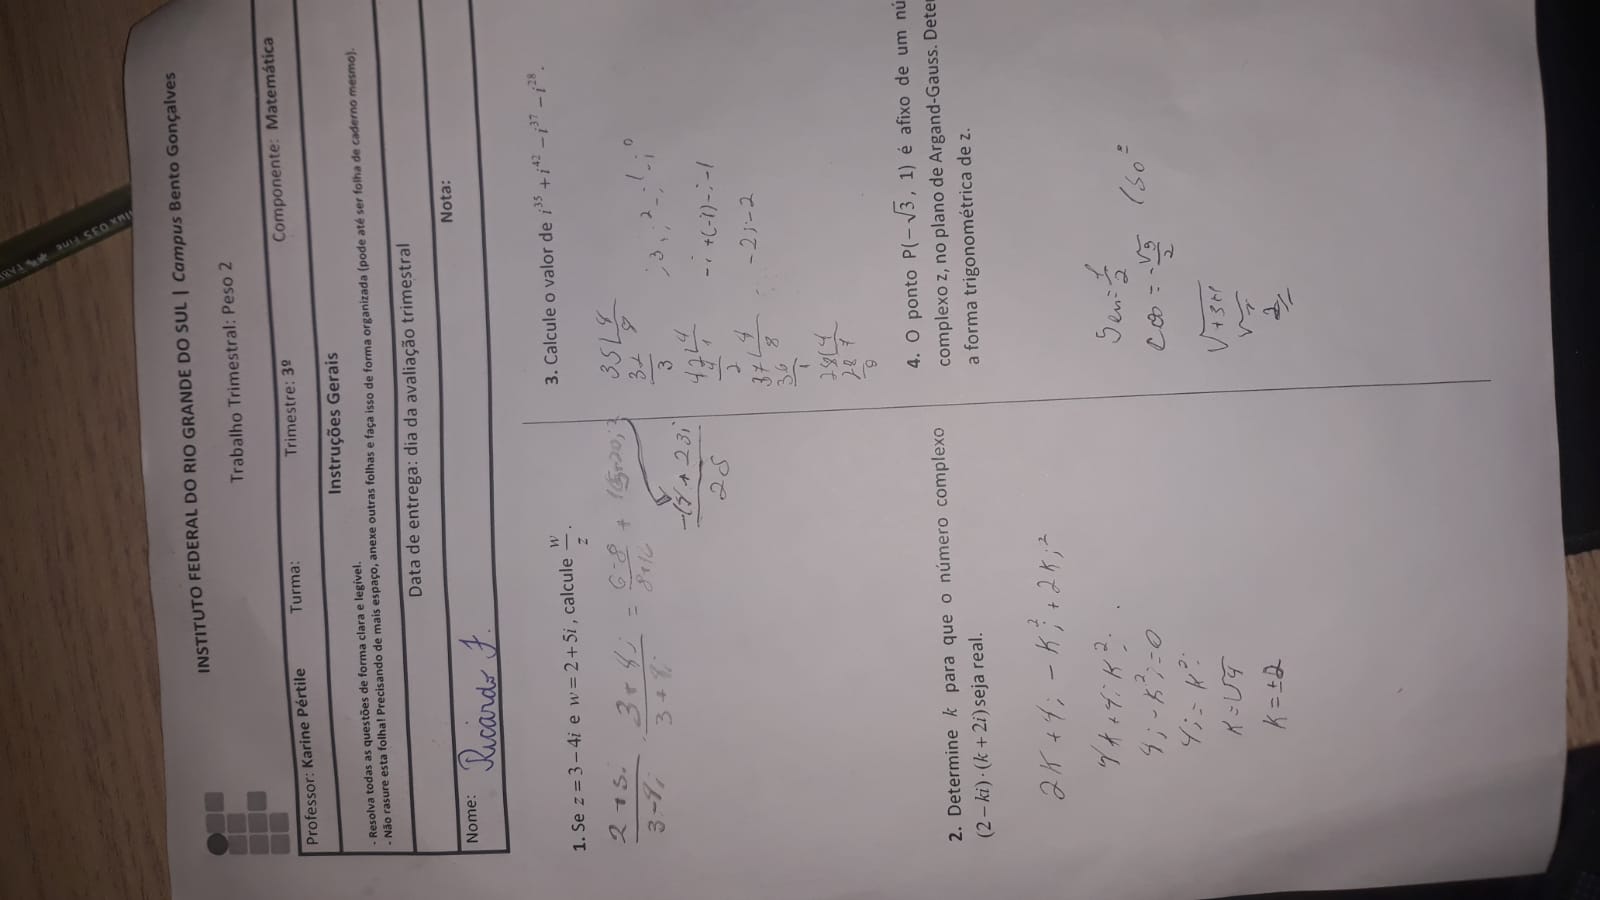 INSTITUTO FEDERAL DO RIO GRANDE DO SUL | Campus Bento Gonçalves
Trabalho Trimestral: Peso 2
Professor: Karine Pértile Turma: Trimestre: 3º Componente: Matemática
Instruções Gerais
- Resolva todas as questões de forma clara e legível.
- Não rasure esta folha! Precisando de mais espaço, anexe outras folhas e faça isso de forma organizada (pode até ser folha de caderno mesmo).
Data de entrega: dia da avaliação trimestral
Nome: Ricardo J. Nota:
1. Se z = 3 – 4i e w = 2 + 5i, calcule w/z.
2+5i/3-4i · 3+4i/3+4i =
-14+23i
25
2. Determine k para que o número complexo
(2 – ki)·(k + 2i) seja real.
2K + 4i - K²i + 2Ki²
4i - K²i = 0
4i = K²i
K = √4
K = ±2
3. Calcule o valor de i³⁵ + i⁴² – i³⁷ – i²⁸.
35 4
32 8
3
42 4
2
37 4
36 8
1
28 4
28 7
0
i³ + i² - i¹ - i⁰
-i + (-1) - i - 1
-2i - 2
4. O ponto P(–√3, 1) é afixo de um nú
complexo z, no plano de Argand-Gauss. Deter
a forma trigonométrica de z.
Sen = 1/2
Cos = -√3/2 150º
√+3+1
2